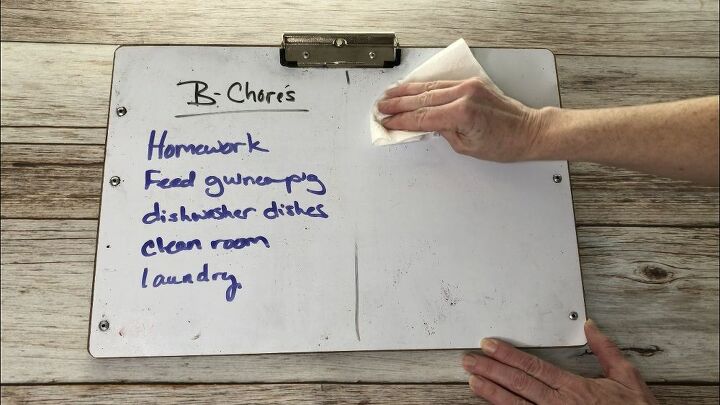 B-Chore's
Homework
Feed guineapig
dishwasher dishes
clean room
laundry